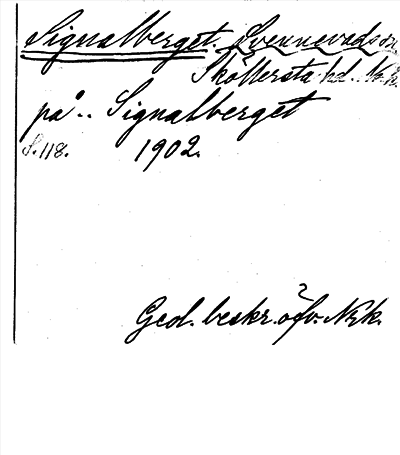 Signalberget. Svennevads sn
Sköllersta hd. Nrk.
på.. Signalberget
S. 118. 1902.
Geol. beskr. öfv. Nrk.